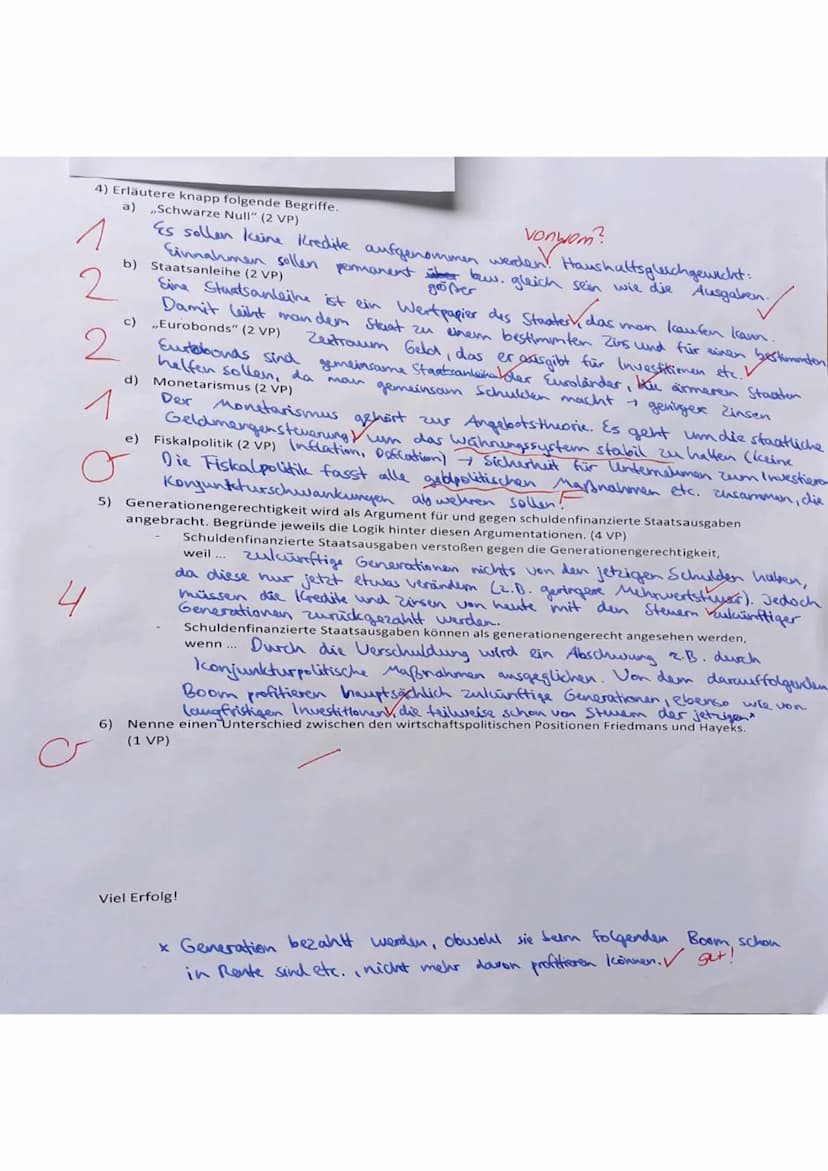 4) Erläutere knapp folgende Begriffe.
a) „Schwarze Null" (2 VP)
1
vonwom?
Es sollen keine Kredite aufgenommen werden. Haushaltsgleichgewicht:
Einnahmen sollen permanent größer bzw. gleich sein wie die Ausgaben.
b) Staatsanleihe (2 VP)
2
Eine Staatsanleihe ist ein Wertpapier des Staates, das man kaufen kann.
Damit leiht man dem Staat zu einem bestimmten Zins und für einen bestimmten
Zeitraum Geld, das er ausgibt für Investitionen etc.
c) „Eurobonds" (2 VP)
2
Eurobonds sind gemeinsame Staatsanleihen der Euroländer, die ärmeren Staaten
helfen sollen, da man gemeinsam Schulden macht → geringer Zinsen
d) Monetarismus (2 VP)
1
Der Monetarismus gehört zur Angebotstheorie. Es geht um die staatliche
Geldmengensteuerung, um das Währungssystem stabil zu halten (keine
Inflation, Deflation) → Sicherheit für Unternehmen zum Investieren
e) Fiskalpolitik (2 VP)
0
Die Fiskalpolitik fasst alle geldpolitischen Maßnahmen etc. zusammen, die
Konjunkturschwankungen abwehren sollen. F
5) Generationengerechtigkeit wird als Argument für und gegen schuldenfinanzierte Staatsausgaben
angebracht. Begründe jeweils die Logik hinter diesen Argumentationen. (4 VP)
- Schuldenfinanzierte Staatsausgaben verstoßen gegen die Generationengerechtigkeit,
weil ... zukünftige Generationen nichts von den jetzigen Schulden haben,
da diese nur jetzt etwas verändern (z.B. geringere Mehrwertsteuer). Jedoch
4
müssen die Kredite und Zinsen von heute mit den Steuern zukünftiger
Generationen zurückgezahlt werden.
- Schuldenfinanzierte Staatsausgaben können als generationengerecht angesehen werden,
wenn ... Durch die Verschuldung wird ein Abschwung z.B. durch
konjunkturpolitische Maßnahmen ausgeglichen. Von dem darauffolgenden
Boom profitieren hauptsächlich zukünftige Generationen, ebenso wie von
langfristigen Investitionen, die teilweise schon von Steuern der jetzigen x
6) Nenne einen Unterschied zwischen den wirtschaftspolitischen Positionen Friedmans und Hayeks.
(1 VP)
0
Viel Erfolg!
x Generation bezahlt werden, obwohl sie beim folgenden Boom schon
in Rente sind etc., nicht mehr davon profitieren können. gut!